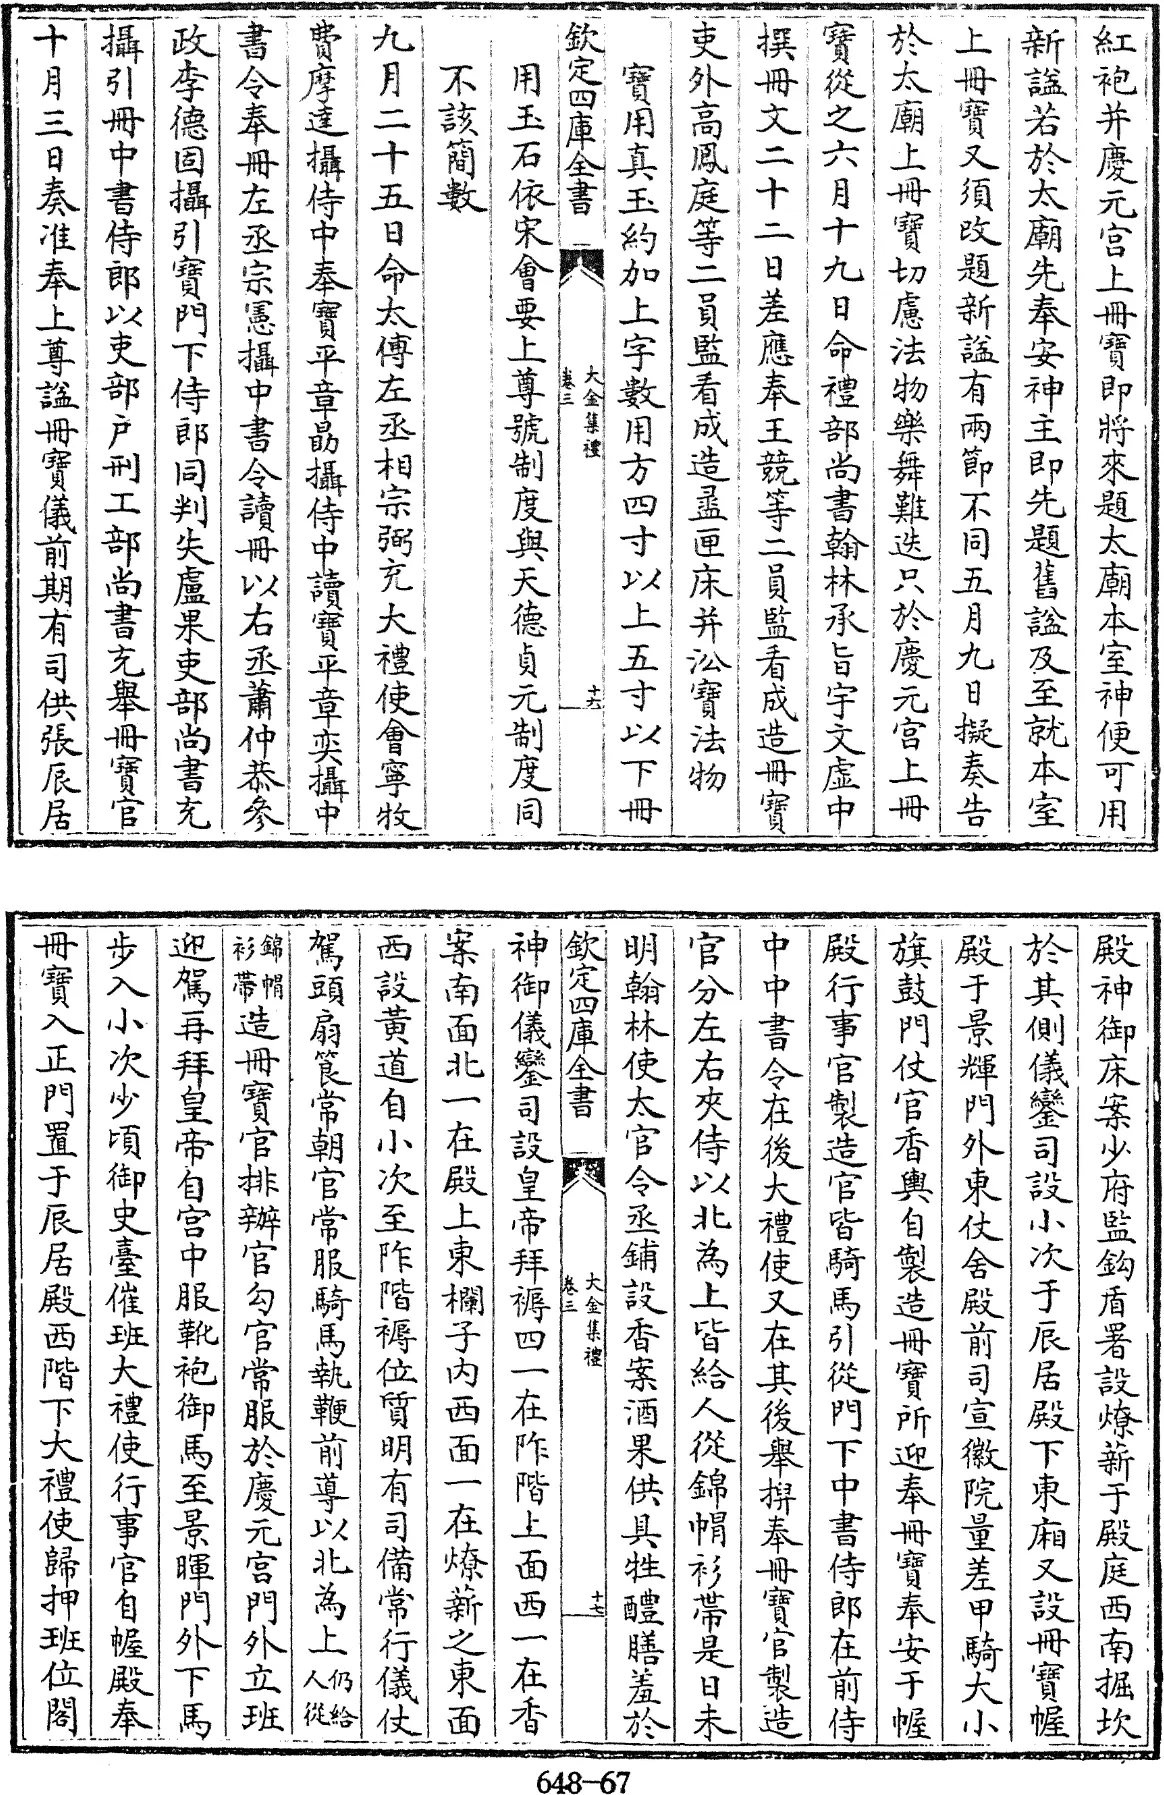 紅袍并慶元宫上冊寶即將來題太廟本室神便可用
新諡若於太廟先奉安神主即先題舊諡及至就本室
上冊寶又須改題新諡有兩節不同五月九日擬奏告
於太廟上冊寶切慮法物樂舞難迭只於慶元宫上冊
寶從之六月十九日命禮部尚書翰林承旨宇文虚中
撰冊文二十二日差應奉王競等二員監看成造冊寶
吏外高鳳庭等二員監看成造盝匣床并㳂寶法物
寶用真玉約加上字數用方四寸以上五寸以下冊
欽定四庫全書
大金集禮
卷三
十六
用玉石依宋會要上尊號制度與天德貞元制度同
不該簡數
九月二十五日命太傅左丞相宗弼充大禮使會寧牧
費摩達攝侍中奉寶平章勗攝侍中讀寶平章奕攝中
書令奉冊左丞宗憲攝中書令讀冊以右丞蕭仲恭參
政李德固攝引寶門下侍郎同判失盧果吏部尚書充
攝引冊中書侍郎以吏部户刑工部尚書充舉冊寶官
十月三日奏准奉上尊諡冊寶儀前期有司供張辰居
殿神御床案少府監鈎盾署設燎薪于殿庭西南掘坎
於其側儀鸞司設小次于辰居殿下東廂又設冊寶幄
殿于景輝門外東仗舍殿前司宣徽院量差甲騎大小
旗鼓門仗官香輿自製造冊寶所迎奉冊寶奉安于幄
殿行事官製造官皆騎馬引從門下中書侍郎在前侍
中中書令在後大禮使又在其後舉捧奉冊寶官製造
官分左右夾侍以北為上皆給人從錦帽衫帶是日未
明翰林使太官令丞鋪設香案酒果供具牲醴膳羞於
欽定四庫全書
大金集禮
卷三
十七
神御儀鸞司設皇帝拜褥四一在阼階上面西一在香
案南面北一在殿上東欄子内西面一在燎薪之東面
西設黄道自小次至阼階褥位質明有司備常行儀仗
駕頭扇筤常朝官常服騎馬執鞭前導以北為上仍給
人從
錦帽
衫帶造冊寶官排辦官勾官常服於慶元宫門外立班
迎駕再拜皇帝自宫中服靴袍御馬至景暉門外下馬
步入小次少頃御史臺催班大禮使行事官自幄殿奉
冊寶入正門置于辰居殿西階下大禮使歸押班位閤
648-67